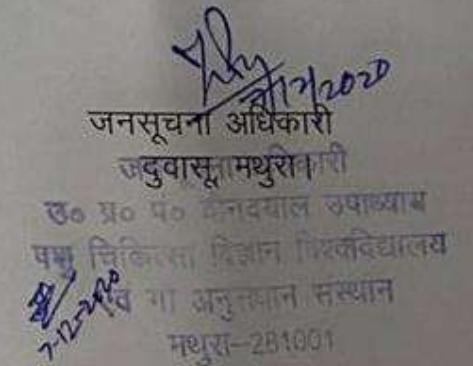 7/12/2020
जनसूचना अधिकारी
दुवासू, मथुरा।
उ० प्र० पं० दीनदयाल उपाध्याय
पशु चिकित्सा विज्ञान विश्वविद्यालय
एवं गो अनुसंधान संस्थान
7-12-2020
मथुरा-281001